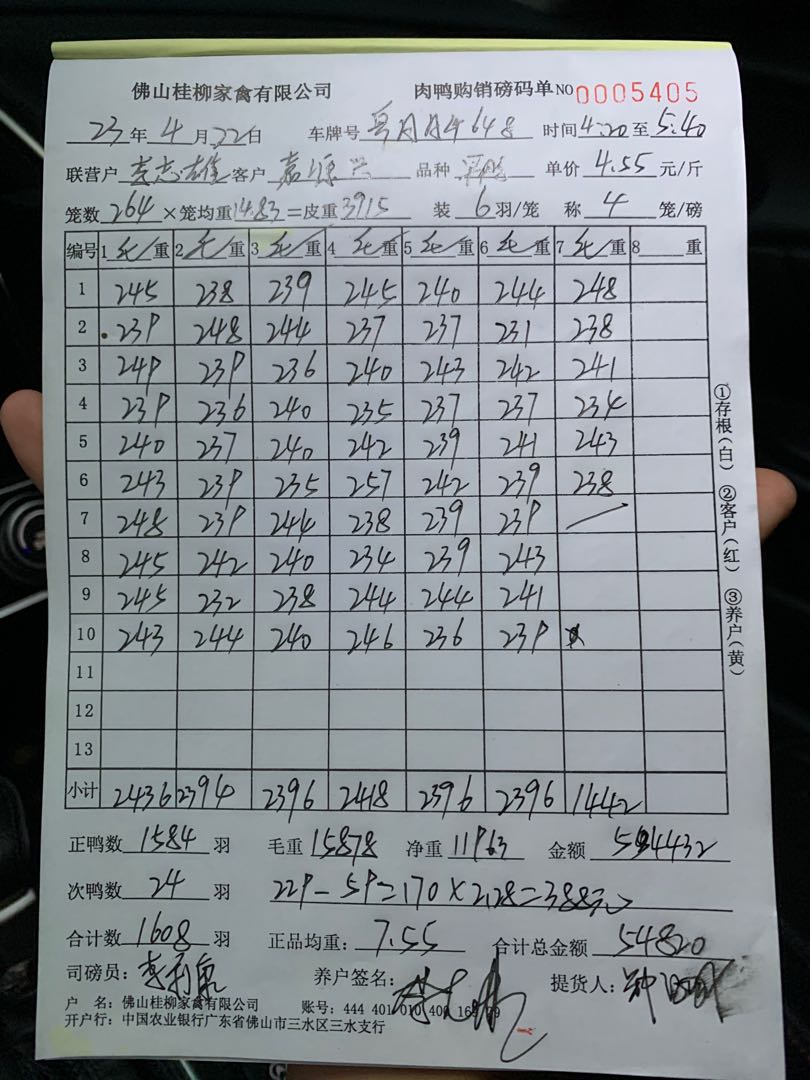 佛山桂柳家禽有限公司 肉鸭购销磅码单 NO 0005405
23年4月22日 车牌号 648 时间4:20至5:40
联营户 李志雄 客户 嘉源兴 品种 单价 4.55 元/斤
笼数264×笼均重14.83=皮重3915 装 6 羽/笼 称 4 笼/磅
编号 1毛重 2毛重 3毛重 4毛重 5毛重 6毛重 7毛重 8 重
1 245 238 239 245 240 244 248
2 239 248 244 237 237 231 238
3 249 239 236 240 243 242 241
4 239 236 240 235 237 237 234
5 240 237 240 242 239 241 243
6 243 239 235 257 242 239 238
7 248 239 244 238 239 239
8 245 242 240 234 239 243
9 245 232 238 244 244 241
10 243 244 240 246 236 239
11
12
13
小计 2436 2394 2396 2418 2396 2396 1442
①存根(白) ②客户(红) ③养户(黄)
正鸭数 1584 羽 毛重 15878 净重 11963 金额 54432
次鸭数 24 羽 229-59=170×2.28=388元
合计数 1608 羽 正品均重: 7.55 合计总金额 54820
司磅员: 养户签名: 提货人:
户 名: 佛山桂柳家禽有限公司 账号: 444 401 010 400
开户行: 中国农业银行广东省佛山市三水区三水支行